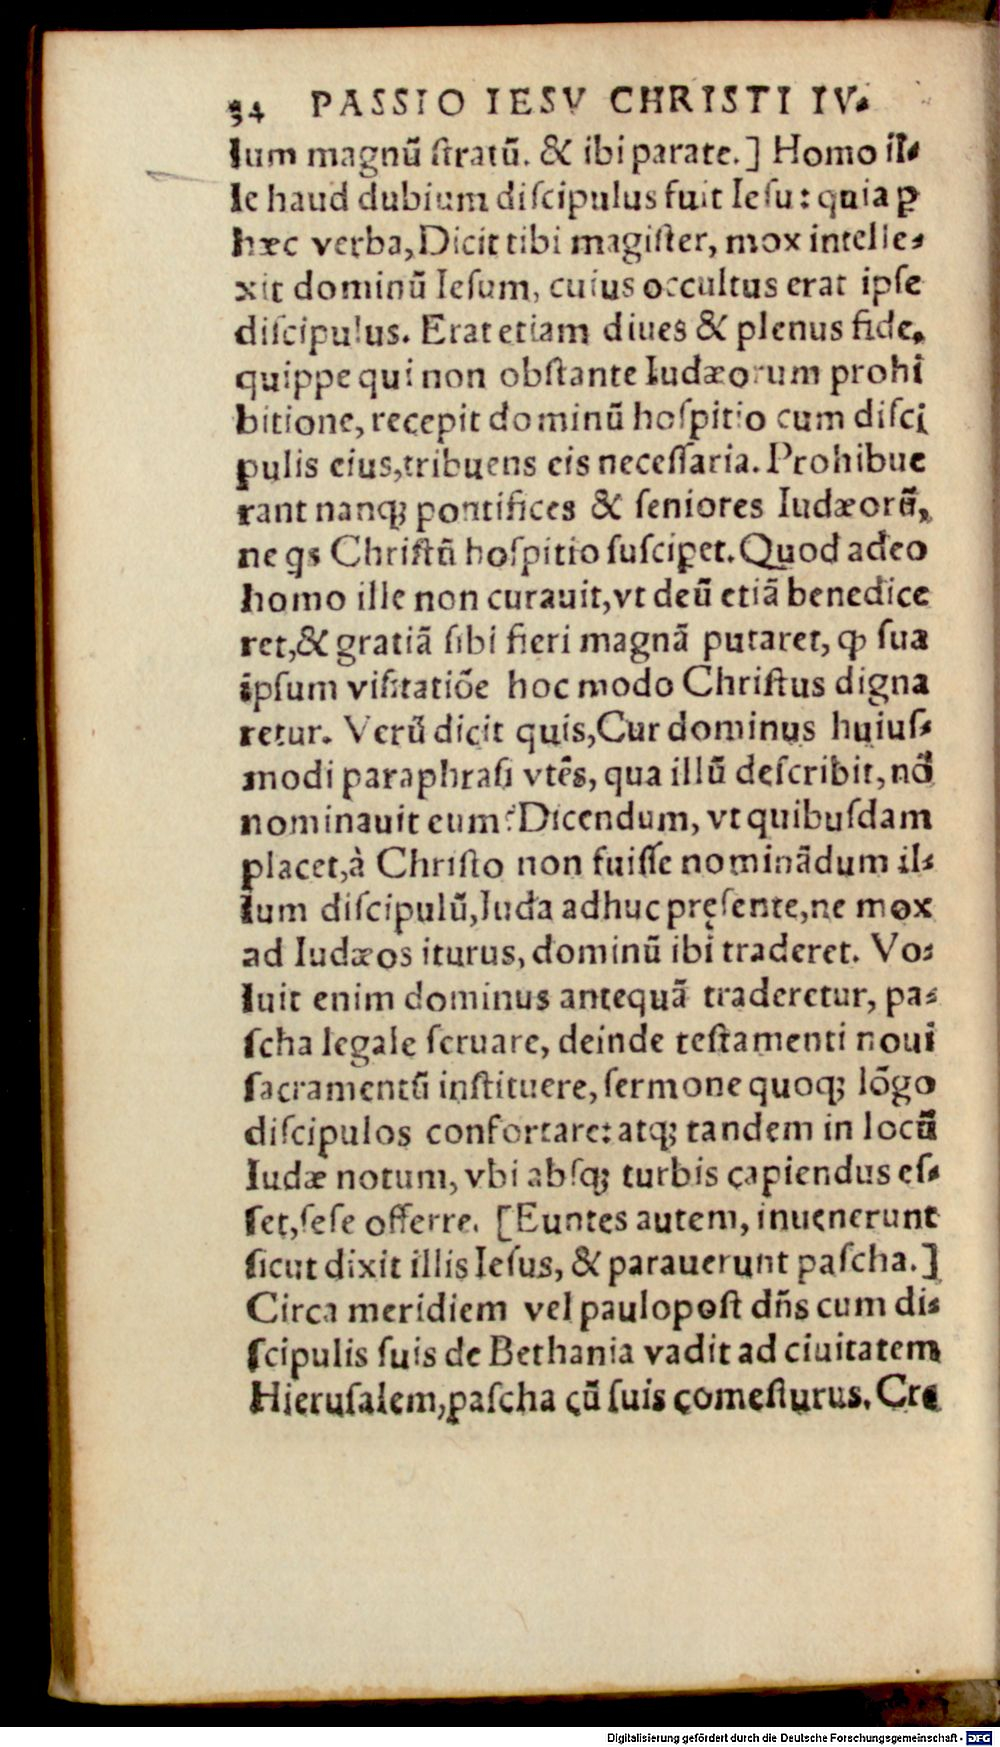 34 PASSIO IESV CHRISTI IV.
lum magnũ ſtratũ. & ibi parate.] Homo il⸗
le haud dubium diſcipulus fuit Ieſu: quia ꝑ
hæc verba, Dicit tibi magiſter, mox intelle⸗
xit dominũ Ieſum, cuius occultus erat ipſe
diſcipulus. Erat etiam diues & plenus fide,
quippe qui non obſtante Iudæorum prohi
bitione, recepit dominũ hoſpitio cum diſci
pulis eius, tribuens eis neceſſaria. Prohibue
rant nanq; pontifices & ſeniores Iudæorũ,
ne qs Chriſtũ hoſpitio ſuſciꝑet. Quod adeo
homo ille non curauit, vt deũ etiã benedice
ret, & gratiã ſibi fieri magnã putaret, ꝙ ſua
ipſum viſitatiõe hoc modo Chriſtus digna
retur. Verũ dicit quis, Cur dominus huiuſ⸗
modi paraphraſi vtẽs, qua illũ deſcribit, nõ
nominauit eum? Dicendum, vt quibuſdam
placet, à Chriſto non fuiſſe nominãdum il⸗
lum diſcipulũ, Iuda adhuc pręſente, ne mox
ad Iudæos iturus, dominũ ibi traderet. Vo⸗
luit enim dominus antequã traderetur, pa⸗
ſcha legale ſeruare, deinde teſtamenti noui
ſacramentũ inſtituere, ſermone quoq; lõgo
diſcipulos confortare: atq; tandem in locũ
Iudæ notum, vbi abſq; turbis capiendus eſ⸗
ſet, ſeſe offerre. [Euntes autem, inuenerunt
ſicut dixit illis Ieſus, & parauerunt paſcha.]
Circa meridiem vel paulopoſt dñs cum di⸗
ſcipulis ſuis de Bethania vadit ad ciuitatem
Hieruſalem, paſcha cũ ſuis comeſturus. Cre
Digitalisierung gefördert durch die Deutsche Forschungsgemeinschaft - DFG